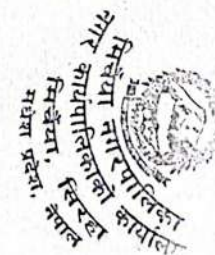 मिर्चैया नगरपालिका
नगर कार्यपालिकाको कार्यालय
मिर्चैया, सिरहा
मधेश प्रदेश, नेपाल